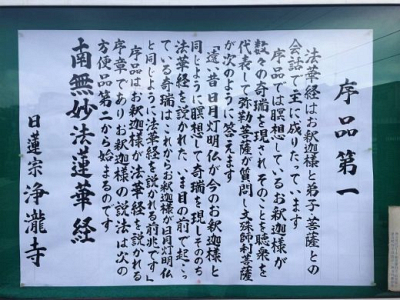 序品第一
法華経はお釈迦様と弟子・菩薩との
会話で主に成りたっています
序品では瞑想しているお釈迦様が
数々の奇瑞を現されそのことを聴衆を
代表して弥勒菩薩が質問し文殊師利菩薩
が次のように答えます
「遠い昔日月灯明仏が今のお釈迦様と
同じように瞑想して奇瑞を現しそののち
法華経を説かれた いま目の前で起こっ
ている奇瑞はこれからお釈迦様が日月灯明仏
と同じように法華経を説かれる前兆です」
序品はお釈迦様が法華経を説かれる
序章でありお釈迦様の説法は次の
方便品第二から始まるのです
南無妙法蓮華経
日蓮宗 浄瀧寺